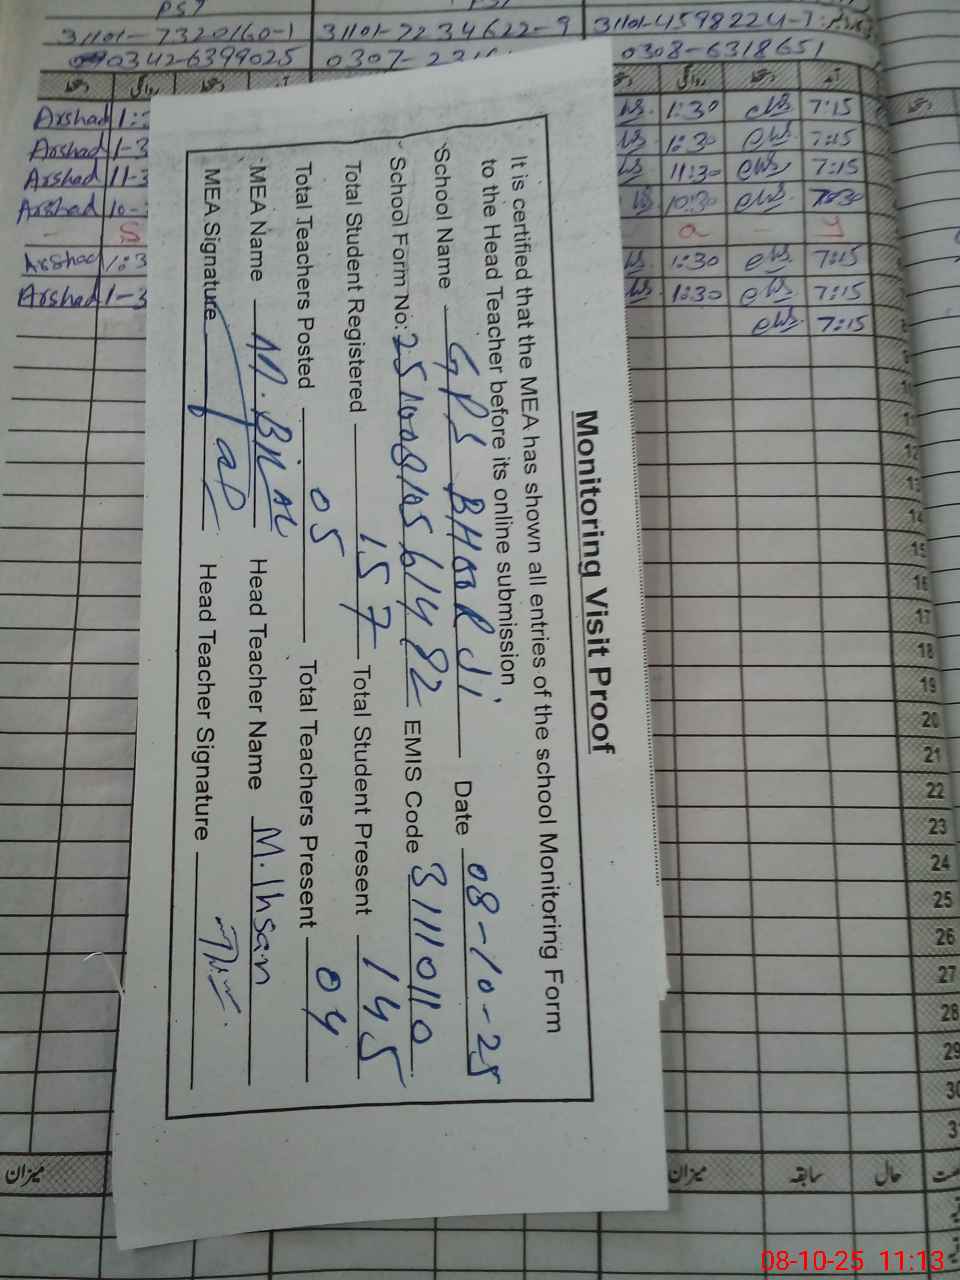 PST
31101-7320160-1 31101-2234622-9 31101-4598224-7
0342-6399025 0307- 0308-6318651
دستخط روانگی دستخط آمد
Arshad 1:3 1:30 7:15
Arshad 1-3 1:30 7:15
Arshad 11-3 11:30 7:15
Arshad 10- 10:30
Arshad 1:3 1:30 7:15
Arshad 1-3 1:30 7:15
7:15
Monitoring Visit Proof
It is certified that the MEA has shown all entries of the school Monitoring Form
to the Head Teacher before its online submission
School Name GPS BHOORJi Date 08-10-25
School Form No: 25100810561482 EMIS Code 31110110
Total Student Registered 157 Total Student Present 145
Total Teachers Posted 05 Total Teachers Present 04
MEA Name M. BILAL Head Teacher Name M. Ihsan
MEA Signature Head Teacher Signature
12
13
14
15
16
17
18
19
20
21
22
23
24
25
26
27
28
29
30
3
میزان میزان سابقہ حال
08-10-25 11:13